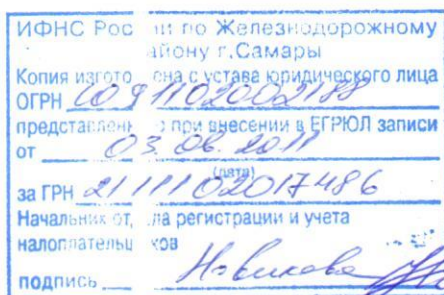 ИФНС Рос и по Железнодорожному
айону г.Самары
Копия изгото ена с устава юридического лица
ОГРН
представленн о при внесении в ЕГРЮЛ записи
от 03.06.2011
(дата)
за ГРН 2111102017486
Начальник от ла регистрации и учета
налогоплательщ ков
подпись Новикова